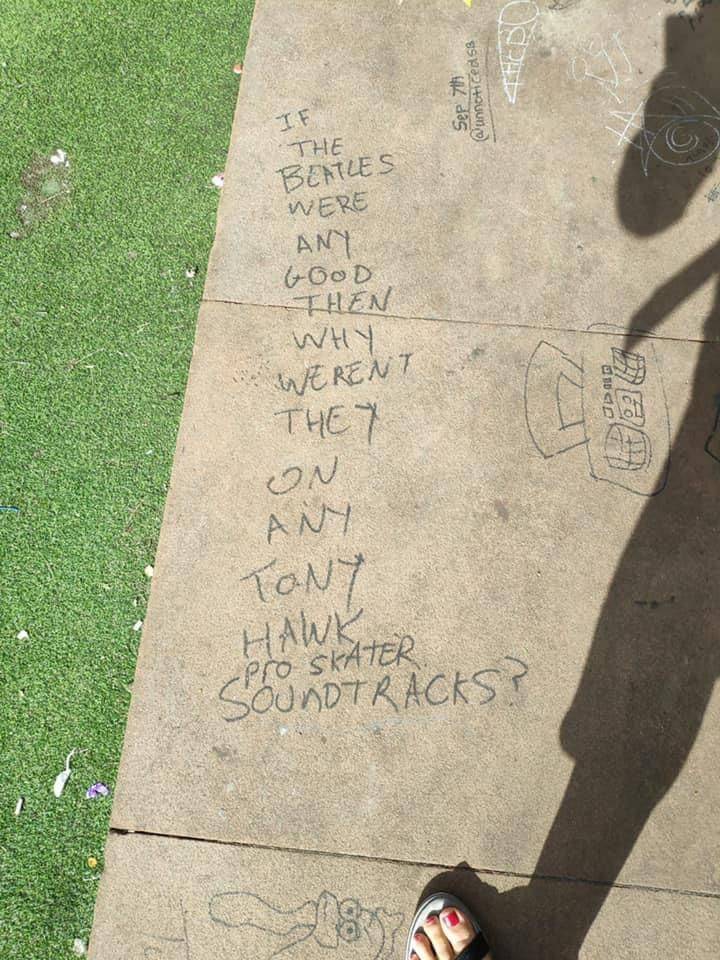 IF
THE
BEATLES
WERE
ANY
GOOD
THEN
WHY
WERENT
THEY
ON
ANY
TONY
HAWK
PRO SKATER
SOUNDTRACKS?
Sep 7th
@unnoticedsb